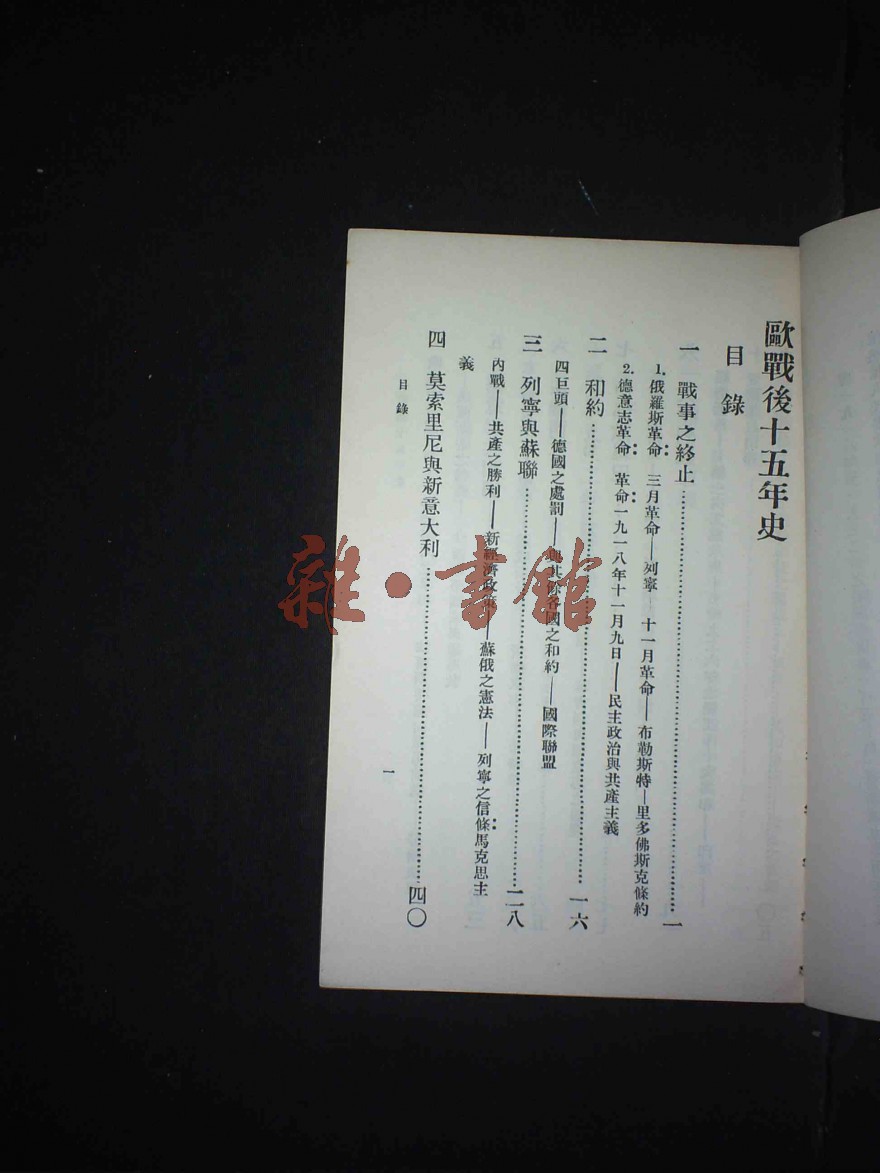 歐戰後十五年史
目錄
一 戰事之終止……一
1. 俄羅斯革命: 三月革命——列寧——十一月革命——布勒斯特—里多佛斯克條約
2. 德意志革命: 革命一九一八年十一月九日——民主政治與共產主義
二 和約……一六
四巨頭——德國之處罰——與其餘各國之和約——國際聯盟
三 列寧與蘇聯……二八
內戰——共產之勝利——新經濟政策——蘇俄之憲法——列寧之信條:馬克思主
義
四 莫索里尼與新意大利……四〇
目錄
一
雜·書館